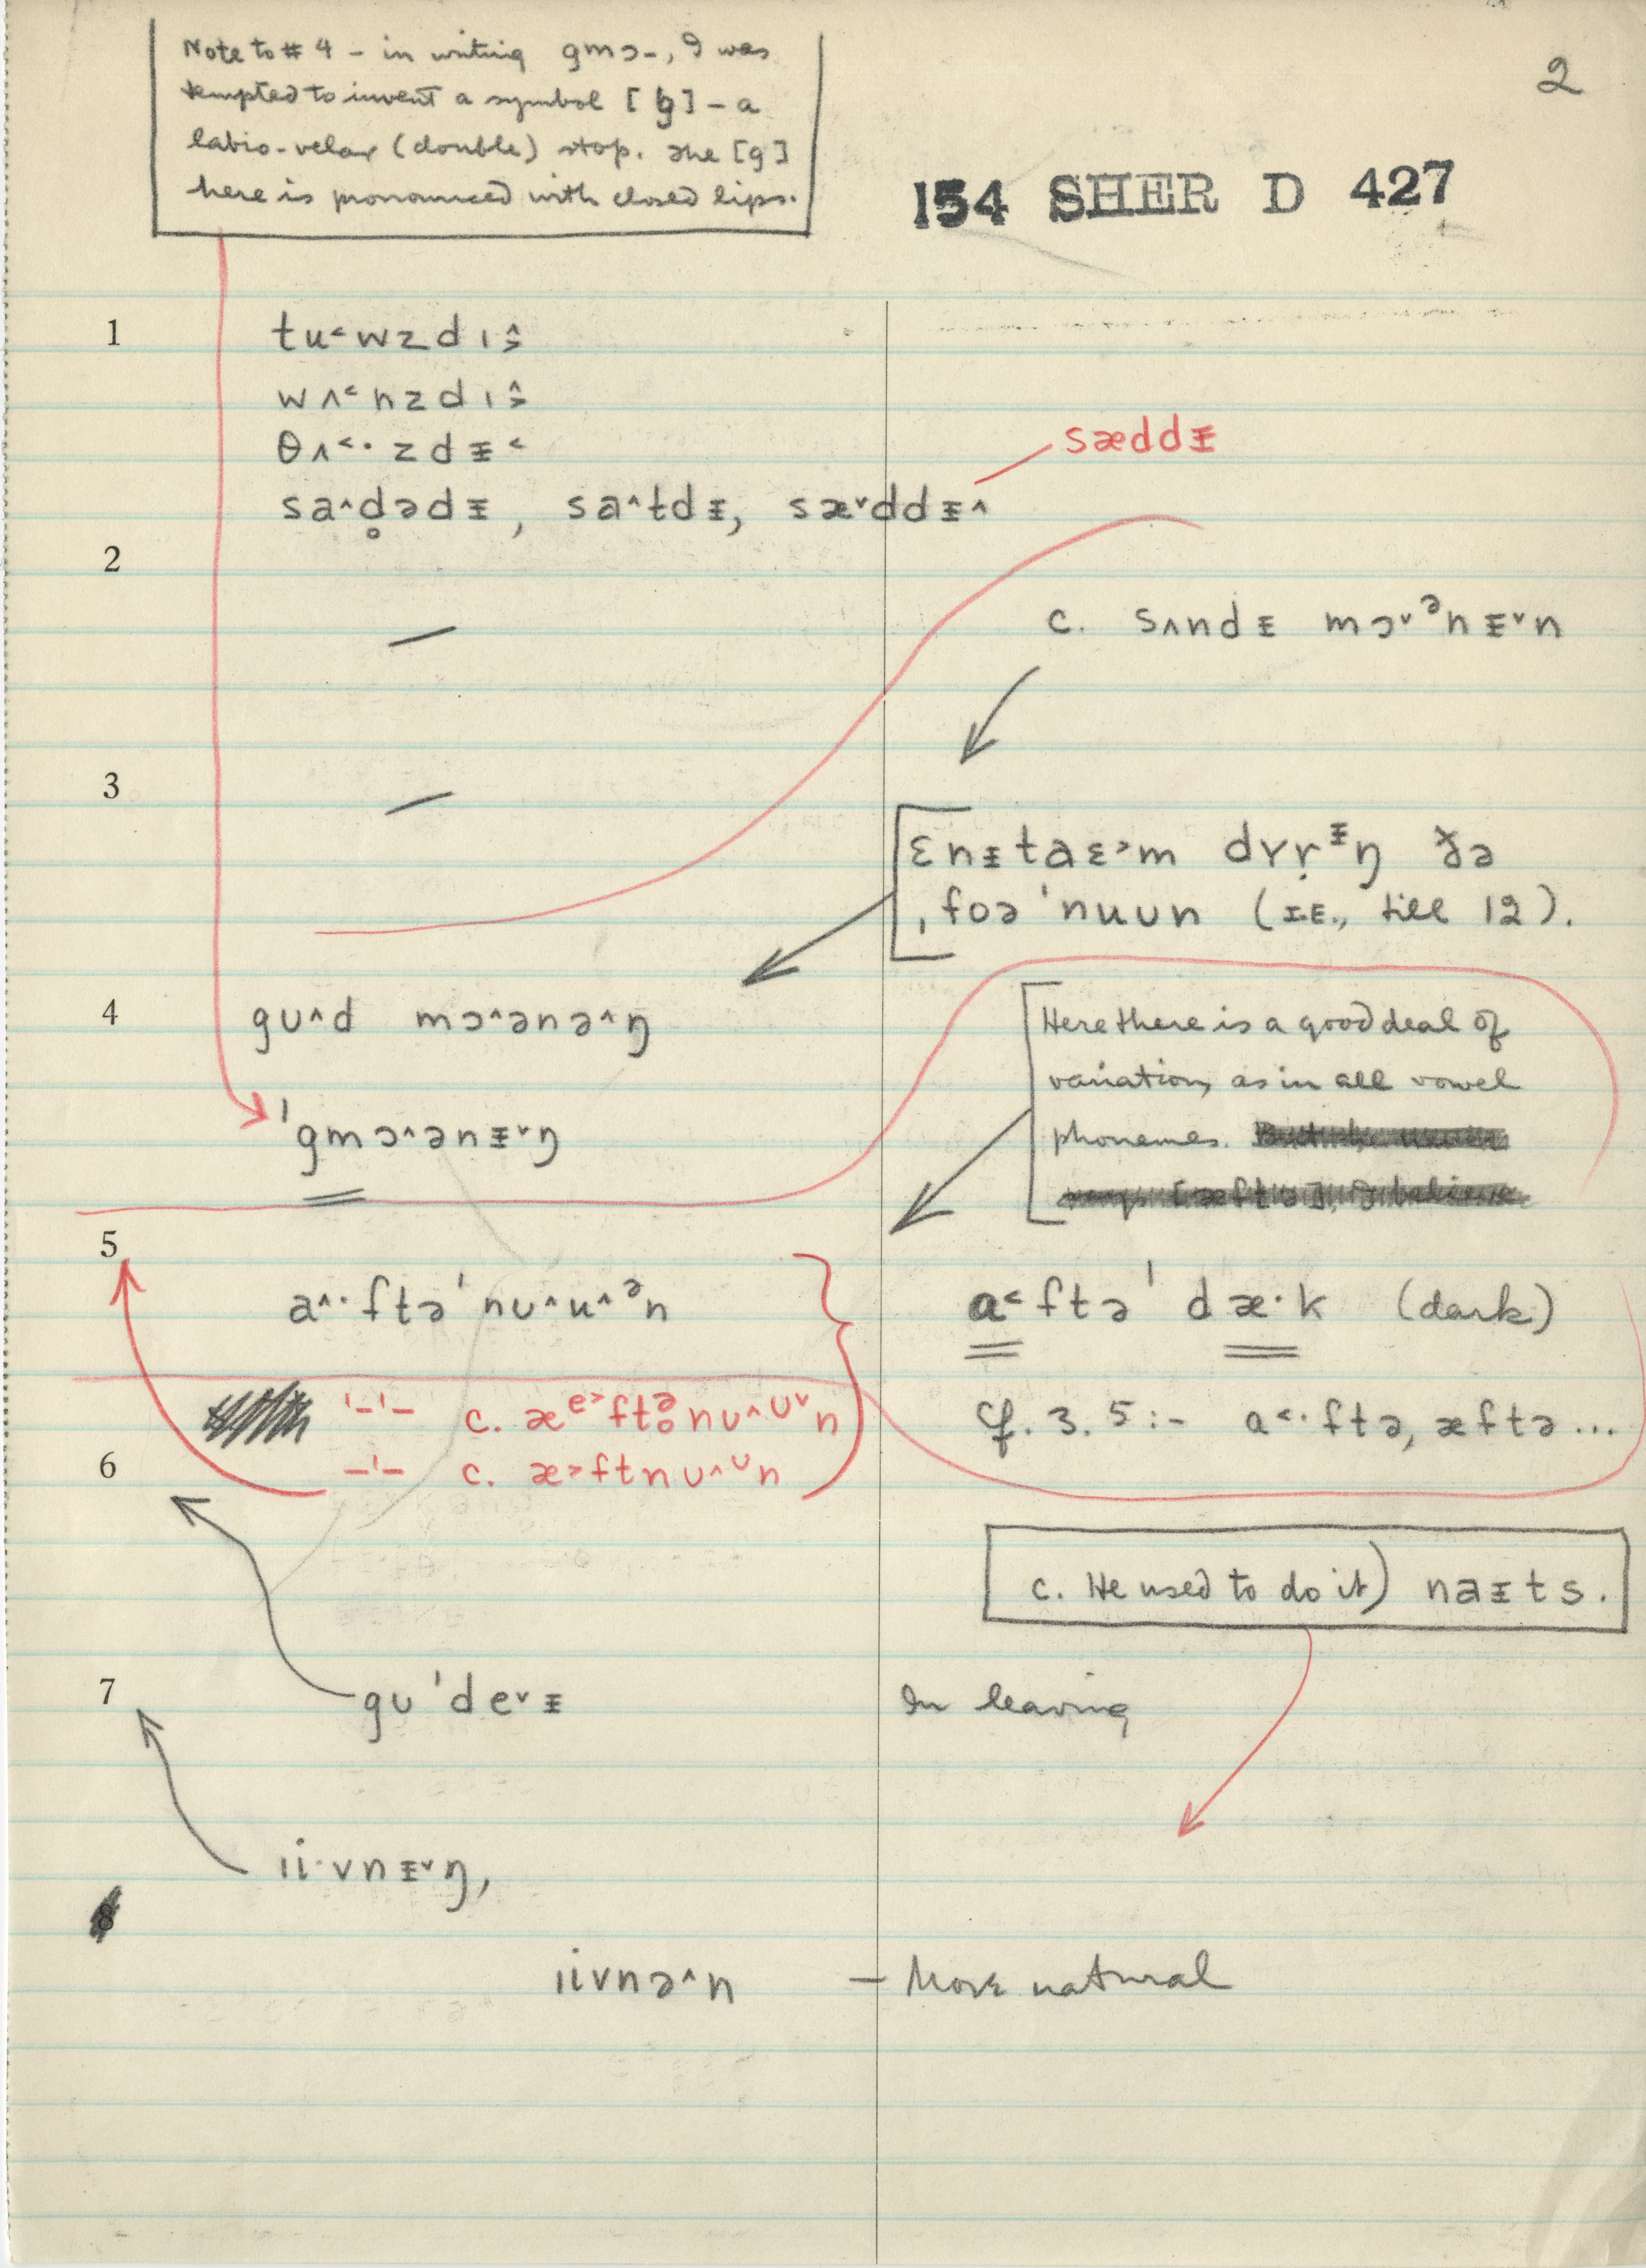 Note to # 4 – in writing gmɔ-, I was
tempted to invent a symbol [ɡ̮] – a
labio-velar (double) stop. The [g]
here is pronounced with closed lips.
2
154 SHER D 427
1 tu˂wzdɪ˰˃
wʌ˂nzdɪ˰˃
θʌ˂·zdᵻ˂
sæddᵻ
sa˄d̥ədᵻ, sa˄tdᵻ, sæ˅ddᵻ˄
2
c. sʌndᵻ mɔ˅ᵊnᵻ˅n
3
ɛnᵻtaɛ˃m dɤṛᵻŋ ðə
ˌfoə ˈnuʊn (I.E., till 12).
4 gʊ˄d mɔ˄ənə˄ŋ
Here there is a good deal of
variation, as in all vowel
phonemes.
ˈgmɔ˄ənᵻ˅ŋ
5
a˄·ftəˈnʊ˄u˄ᵊn
a˂ftəˈ dæ·k (dark)
'-'- c. æᵉ˃ftə̥nʊ˄ᶸ˅n
cf. 3. 5:- a˂·ftə, æftə...
6 -'- c. æ˃ftnʊ˄ᶸn
c. He used to do it) naᵻts.
7 gʊˈde˅ᵻ In leaving
ɪi·vnᵻ˅ŋ,
8
ɪivnə˄n – More natural